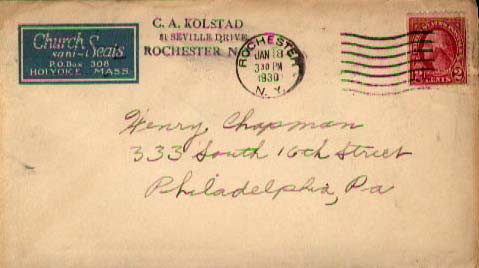 Church
sani-Seats
P.O. Box 308
HOLYOKE MASS
C. A. KOLSTAD
81 SEVILLE DRIVE
ROCHESTER N.
ROCHESTER
JAN 18
3 30 PM
1930
N. Y.
2 CENTS 2
Henry Chapman
333 South 16th Street
Philadelphia, Pa